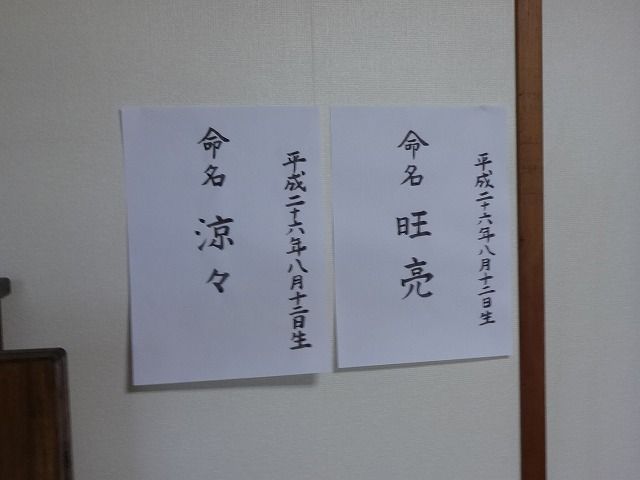 平成二十六年八月十二日生
命名 旺亮
平成二十六年八月十二日生
命名 涼々